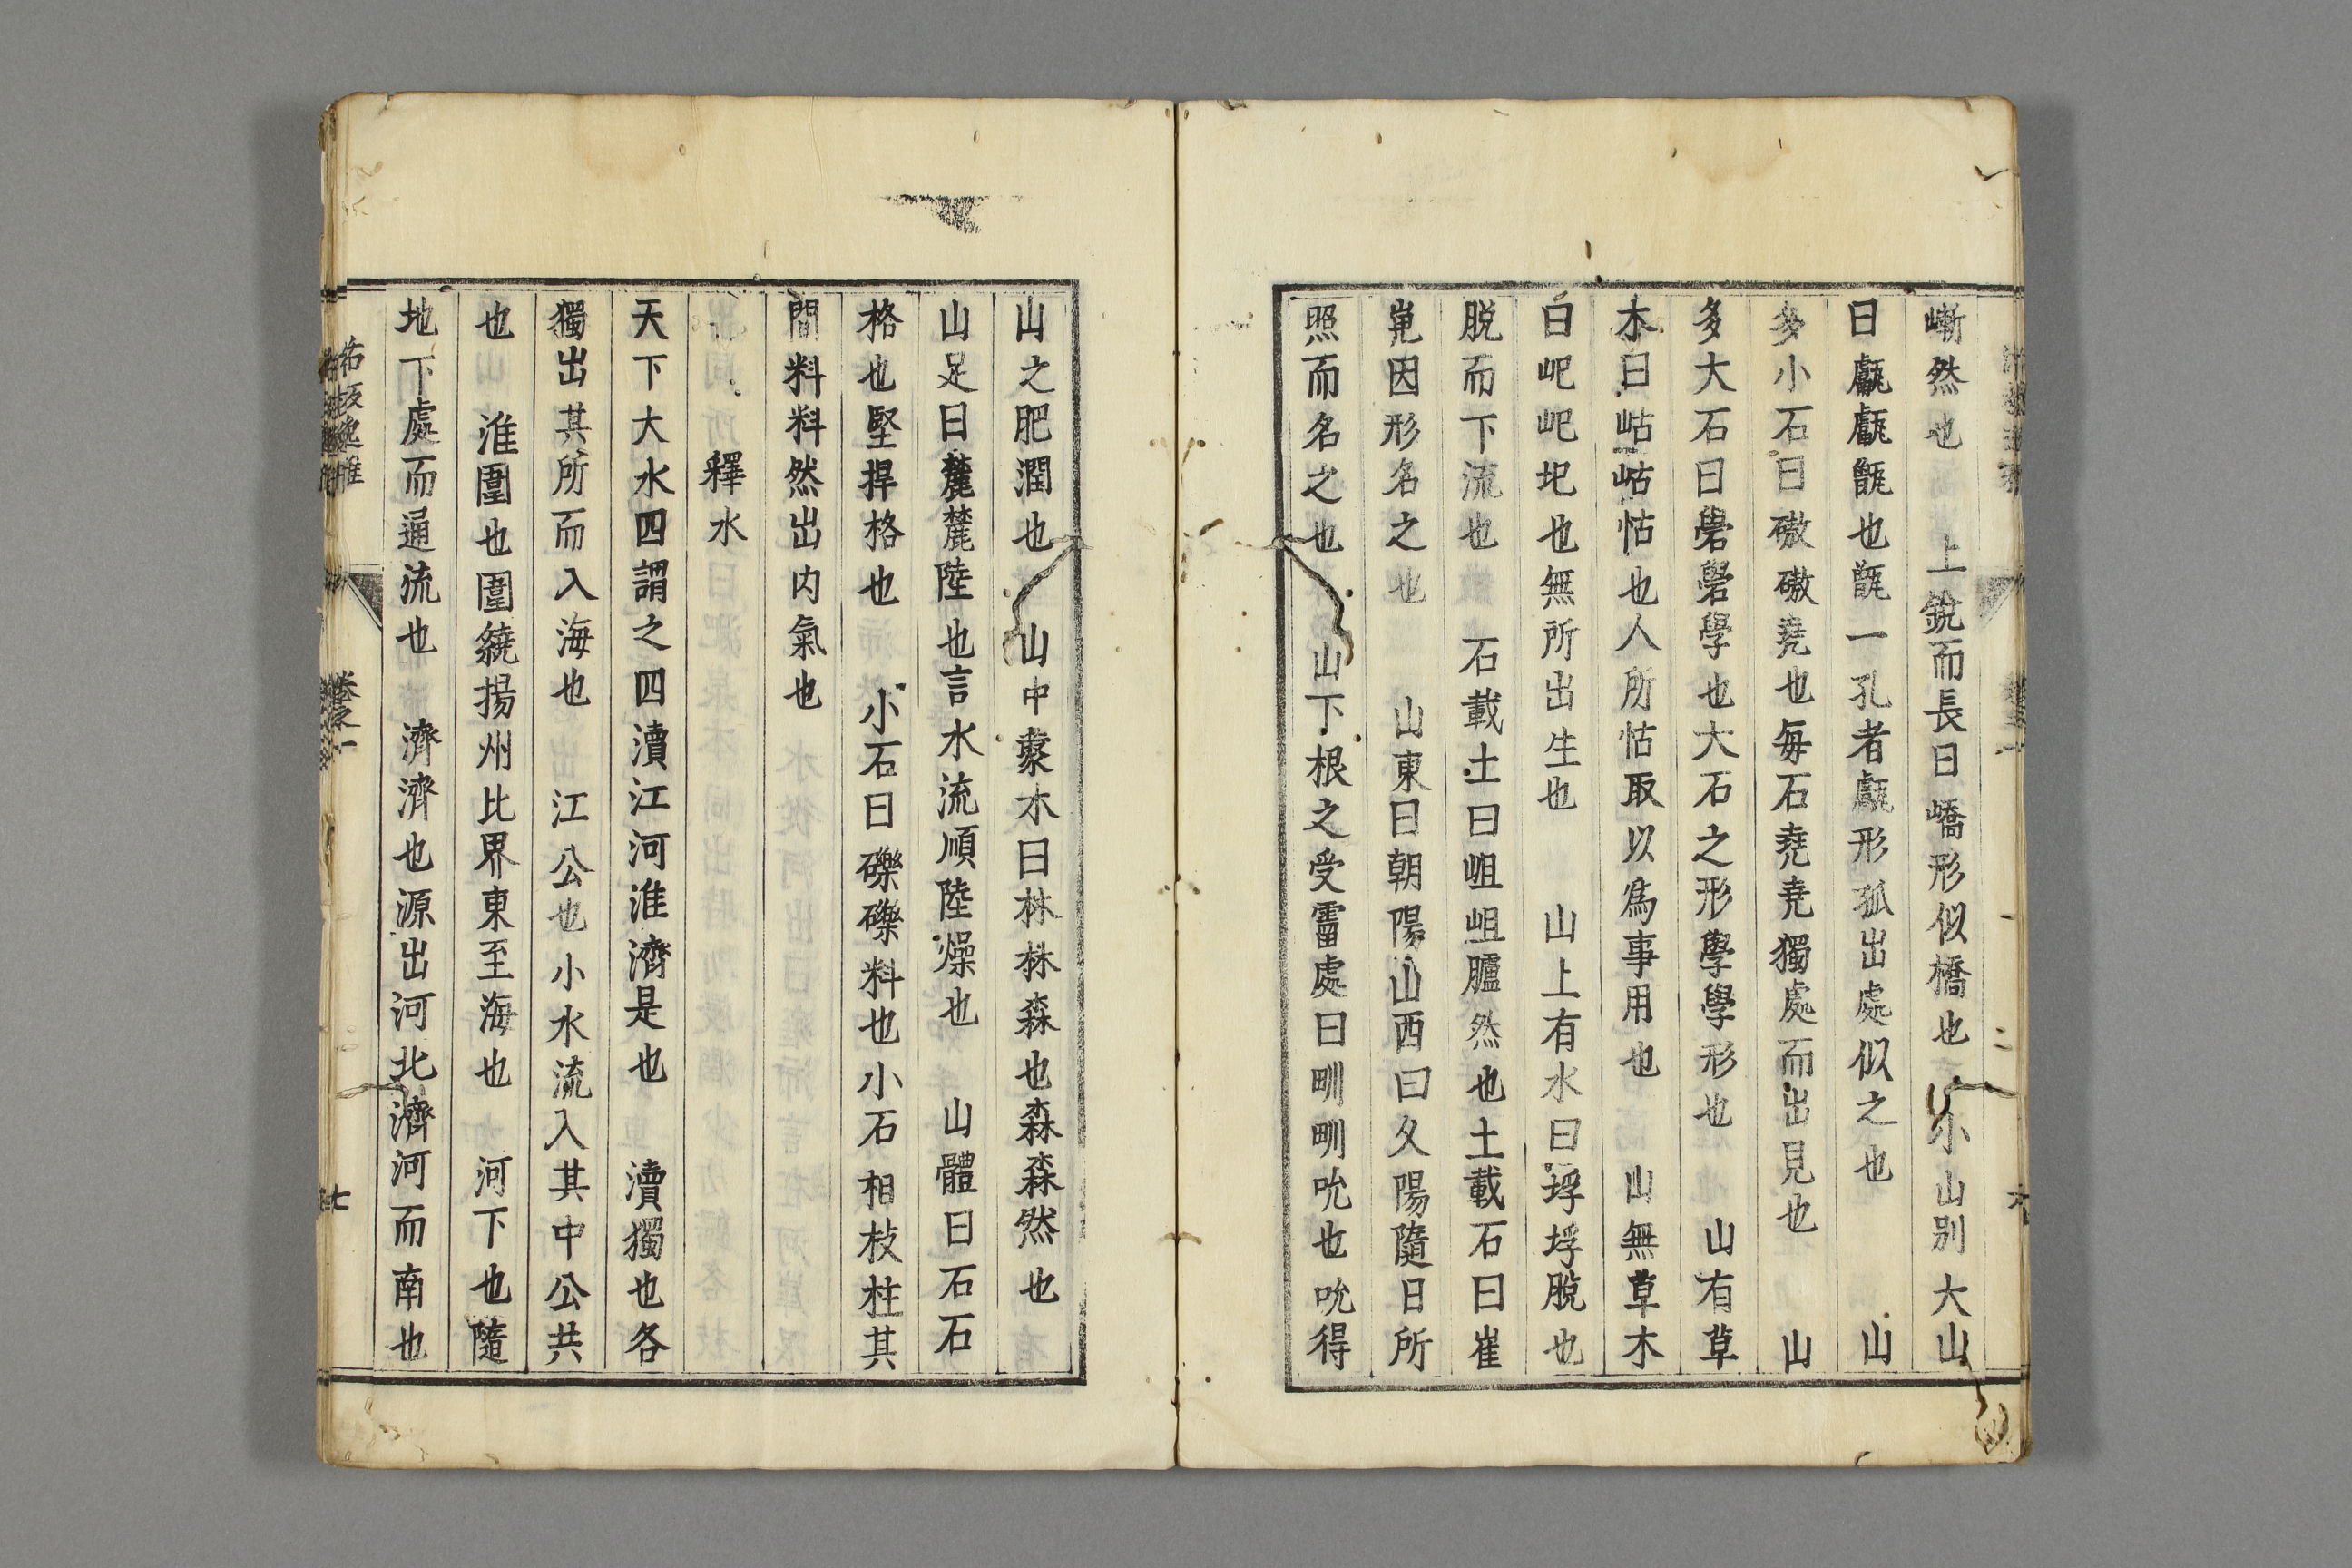 嶃然也 上銳而長曰嶠形似橋也 小山別大山
曰甗甗甑也甑一孔者甗形孤出處似之也 山
多小石曰磝磝堯也每石堯堯獨處而出見也 山
多大石曰礐礐學也大石之形學學形也 山有草
木曰岵岵怙也人所怙取以爲事用也 山無草木
曰屺屺圯也無所出生也 山上有水曰垺垺脫也
脫而下流也 石載土曰岨岨臚然也土載石曰崔
嵬因形名之也 山東曰朝陽山西曰夕陽隨日所
照而名之也 山下根之受霤處曰甽甽吮也吮得
山之肥潤也 山中藂木曰林林森也森森然也
山足曰麓麓陸也言水流順陸燥也 山體曰石石
格也堅捍格也 小石曰礫礫料也小石相枝柱其
間料料然出内氣也
釋水
天下大水四謂之四瀆江河淮濟是也 瀆獨也各
獨出其所而入海也 江公也小水流入其中公共
也 淮圍也圍繞揚州比界東至海也 河下也隨
地下處而通流也 濟濟也源出河北濟河而南也
卷之一
七